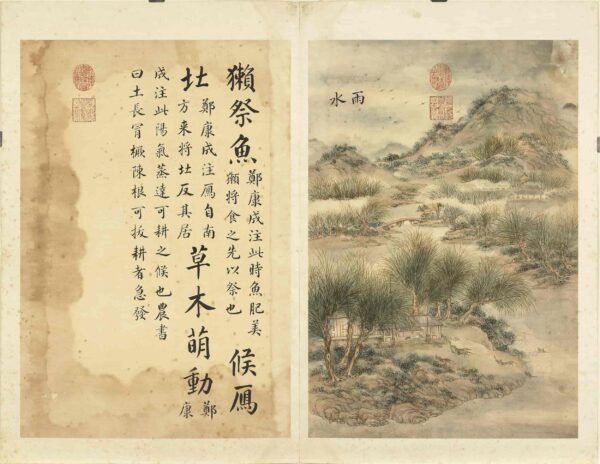 雨水
獺祭魚
鄭康成注此時魚肥美
獺將食之先以祭也
候鴈
北
鄭康成注鴈自南
方来將北反其居
草木萌動
鄭
康
成注此陽氣蒸達可耕之候也農書
曰土長冒橛陳根可拔耕者急發